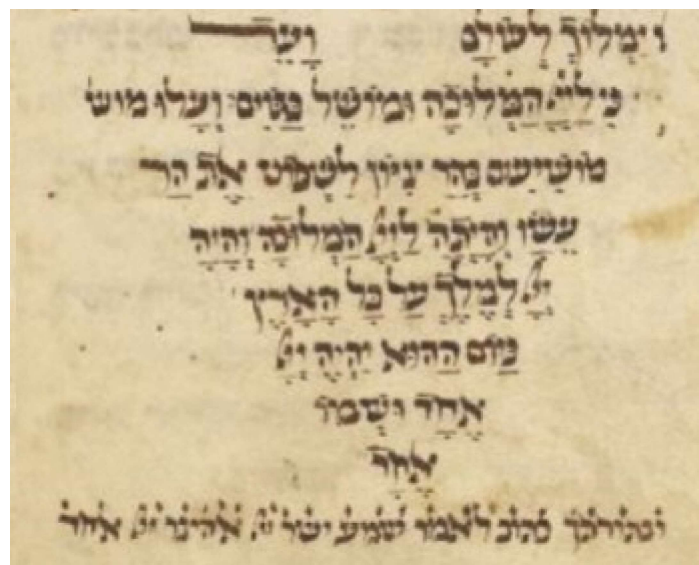 ימלוך לעולם ועד
כי ליי המלוכה ומושל בגוים ועלו מוש
מושיעים בהר ציון לשפוט את הר
עשו והיתה ליי המלוכה והיה
יי למלך על כל הארץ
ביום ההוא יהיה יי
אחד ושמו
אחד
ובתורתך כתוב לאמר שמע ישר' יי אלהינו יי אחד